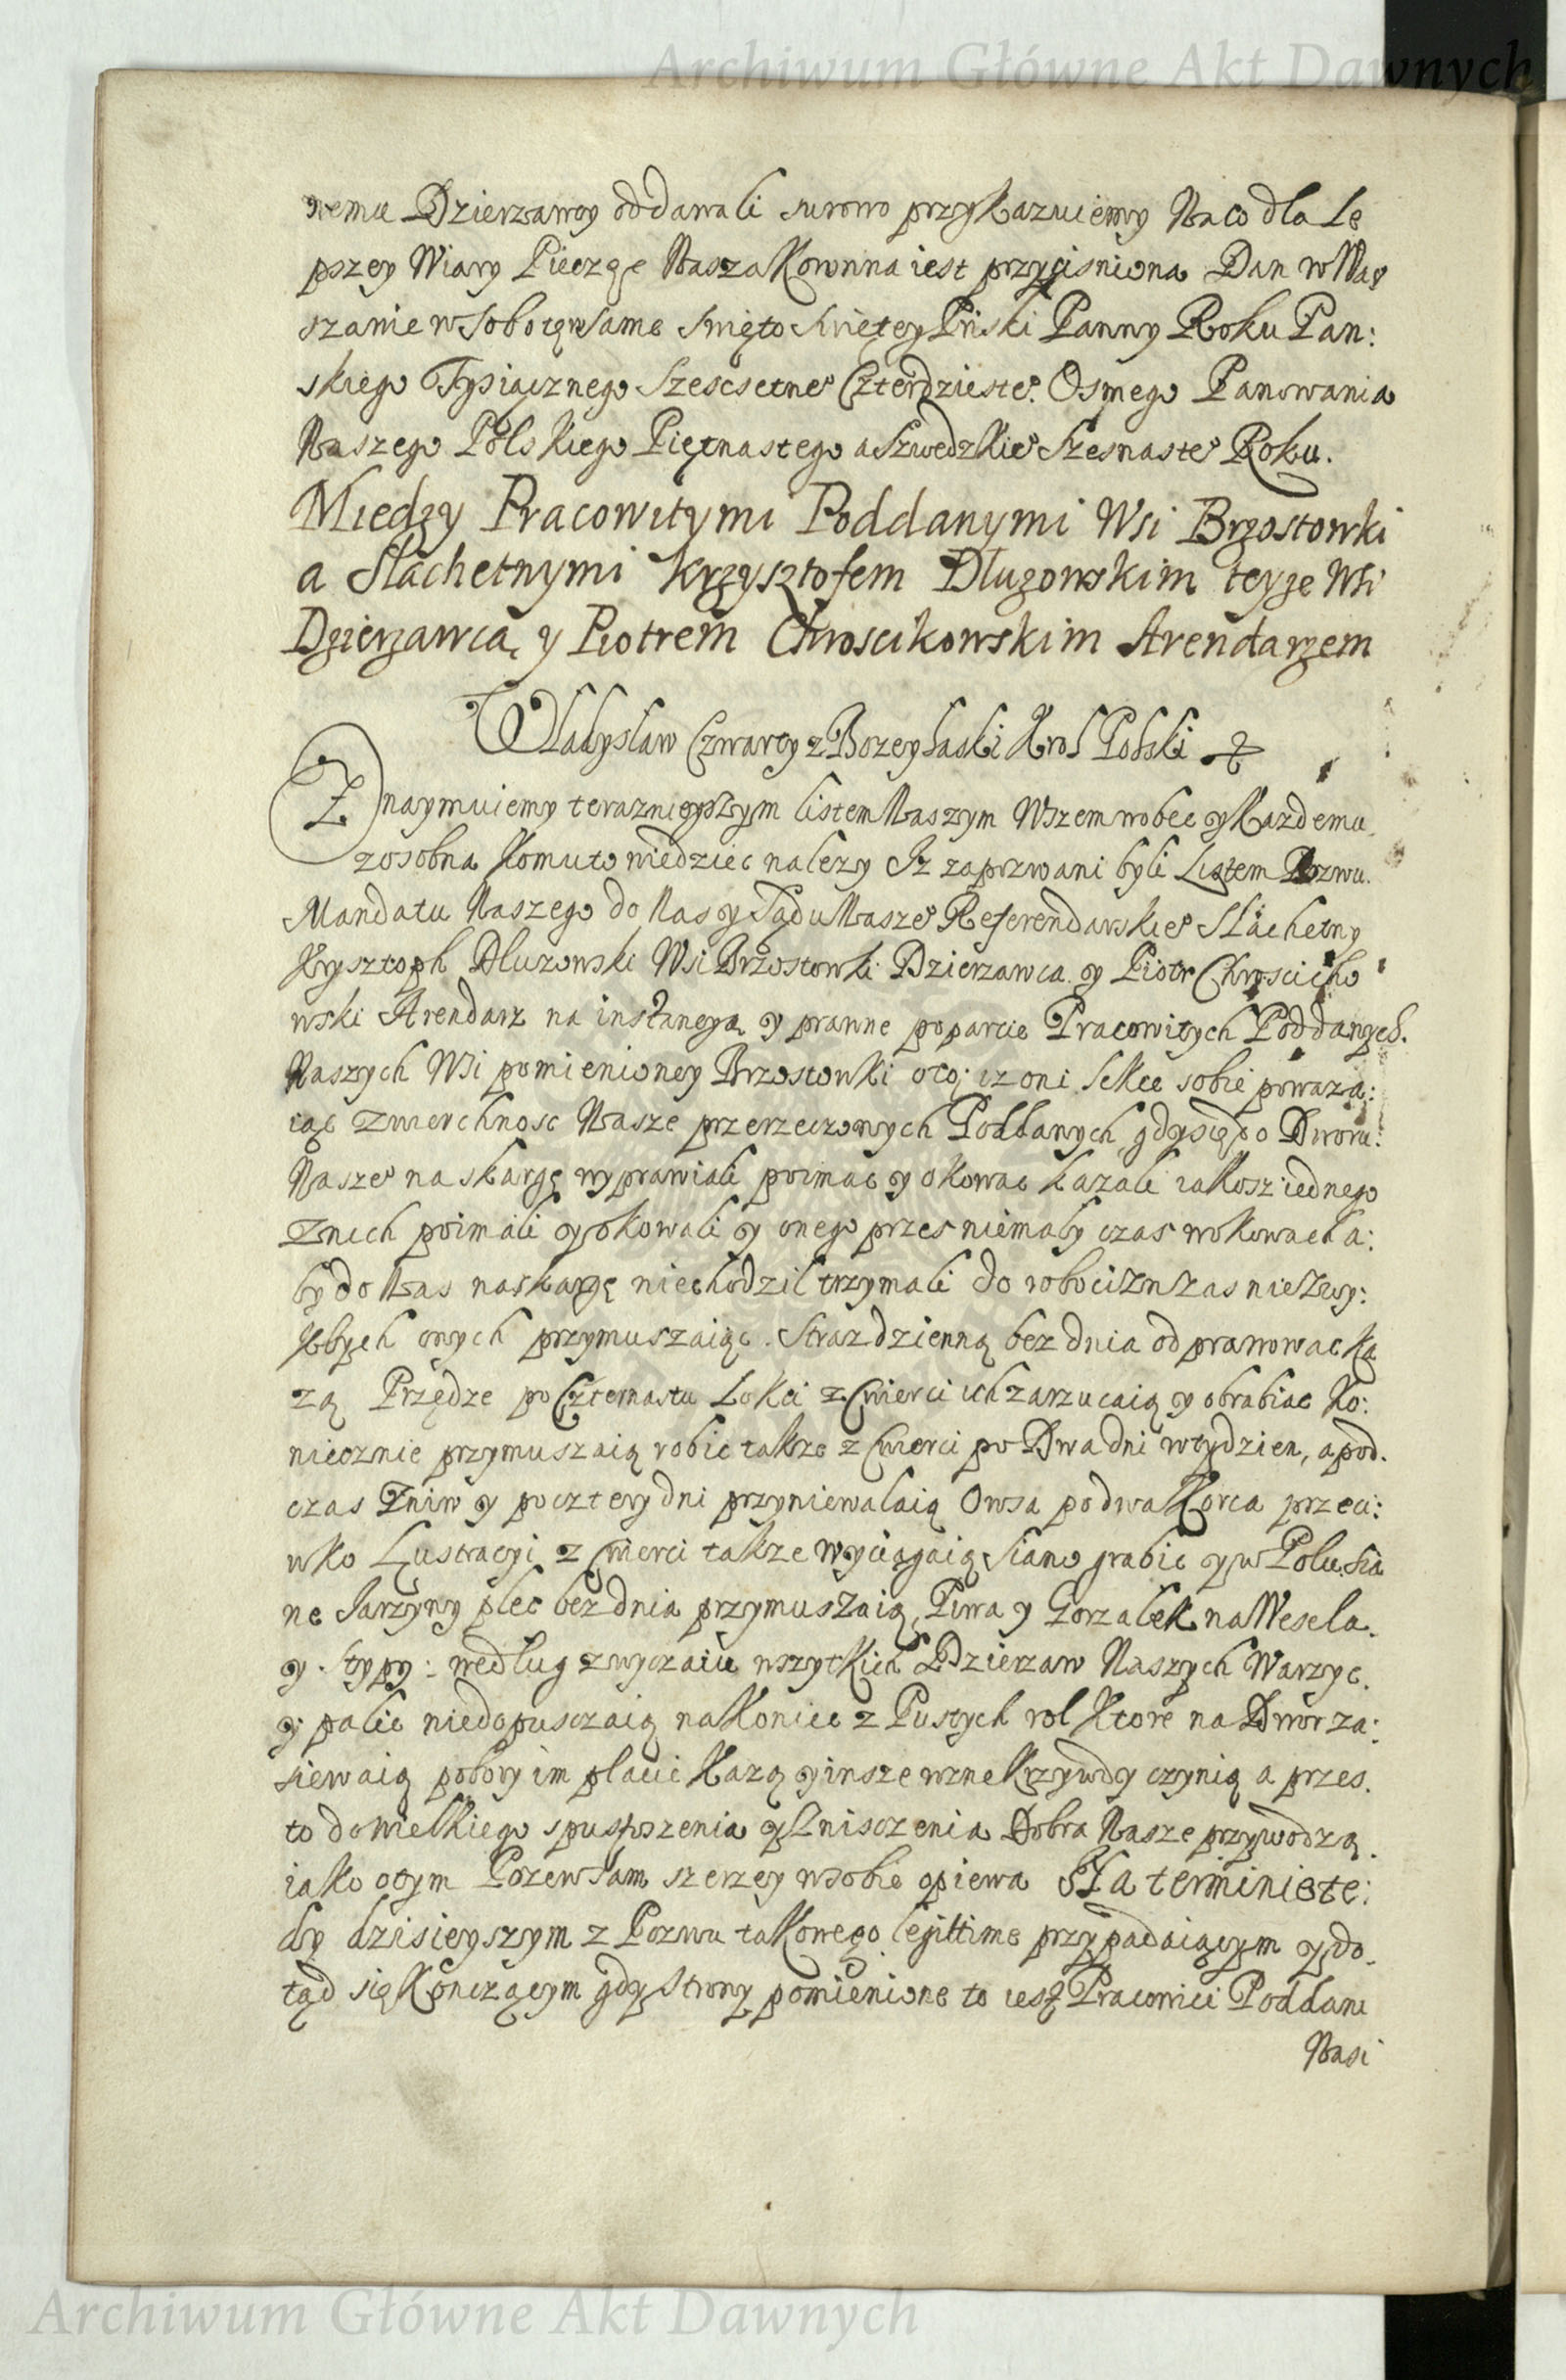 Archiwum Główne Akt Dawnych
nemu Dzierzawcy oddawali surowo przykazuiemy Na co dla Le
pszey Wiary Pieczęc Nasza Koronna iest przycisniona Dan w War
szawie w Sobotę w Same Swięto Swiętey Priski Panny Roku Pan:
skiego Tysiącznego Szescsetne° Czterdzieste° Osmego Panowania
Naszego Polskiego Piętnastego a Szwedzkie° Szesnaste° Roku.
Między Pracowitymi Poddanymi Wsi Brzostowki
a Slachetnymi Krzysztofem Dluzowskim teyze Wsi
Dzierzawcą y Piotrem Chroscikowskim Arendarzem
Wladyslaw Czwarty z Bozey Laski Krol Polski
Znaymuiemy teraznieyszym Listem Naszym Wszem wobec y Kazdemu
zosobna Komu to wiedziec nalezy Iz zaprzwani byli Listem Pozwu
Mandatu Naszego do Nas y Sądu Nasze° Referendarskie° Slachetny
Krysztoph Dluzowski Wsi Brzostowki Dzierzawca y Piotr Chroscicko
wski Arendarz na instancyą y prawne poparcie Pracowitych Poddanych
Naszych Wsi pomienioney Brzostowki oto: iz oni lekce sobie powaza:
iąc zwierchnosc Nasze przerzeczonych Poddanych gdy się do Dworu
Nasze° na skargę wyprawiali poimac y okowac kazali iakosz iednego
z nich poimali y okowali y onego przes niemaly czas w okowach a:
by do Nas na skargę niechodzil trzymali do robocizn zas niezwy:
klych onych przymuszaiąc. Straz dzienną bez dnia odprawowac ka
zą Przędze po Czternastu Lokci z Cwierci ich zarzucaią y obrabiac ko:
niecznie przymuszaią robic takze z Cwierci po Dwa dni w tydzien, a pod
czas Zniw y po cztery dni przyniewalaią Owsa po dwa Korca przeci:
wko Lustracyi z Cwierci takze wyciągaią Siano grabic y w Polu Sia
ne Iarzyny plec bez dnia przymuszaią, Piwa y Gorzalek na Wesela
y Stypy: wedlug zwyczaiu wszytkich Dzierzaw Naszych Warzyc
y palic niedopusczaią na Koniec z Pustych rol Ktore na Dwor za:
siewaią pobory im placic Kazą y insze rozne Krzywdy czynią a przes
to do wielkiego spustoszenia y Znisczenia Dobra Nasze przywodzą
iako o tym Pozew Sam szerzey w sobie opiewa Na terminie te:
dy dzisieyszym z Pozwu takowego legittime przypadaiącym y do
tąd się Konczącym gdy Strony pomienione to iest Pracowici Poddani
Nasi
Archiwum Główne Akt Dawnych